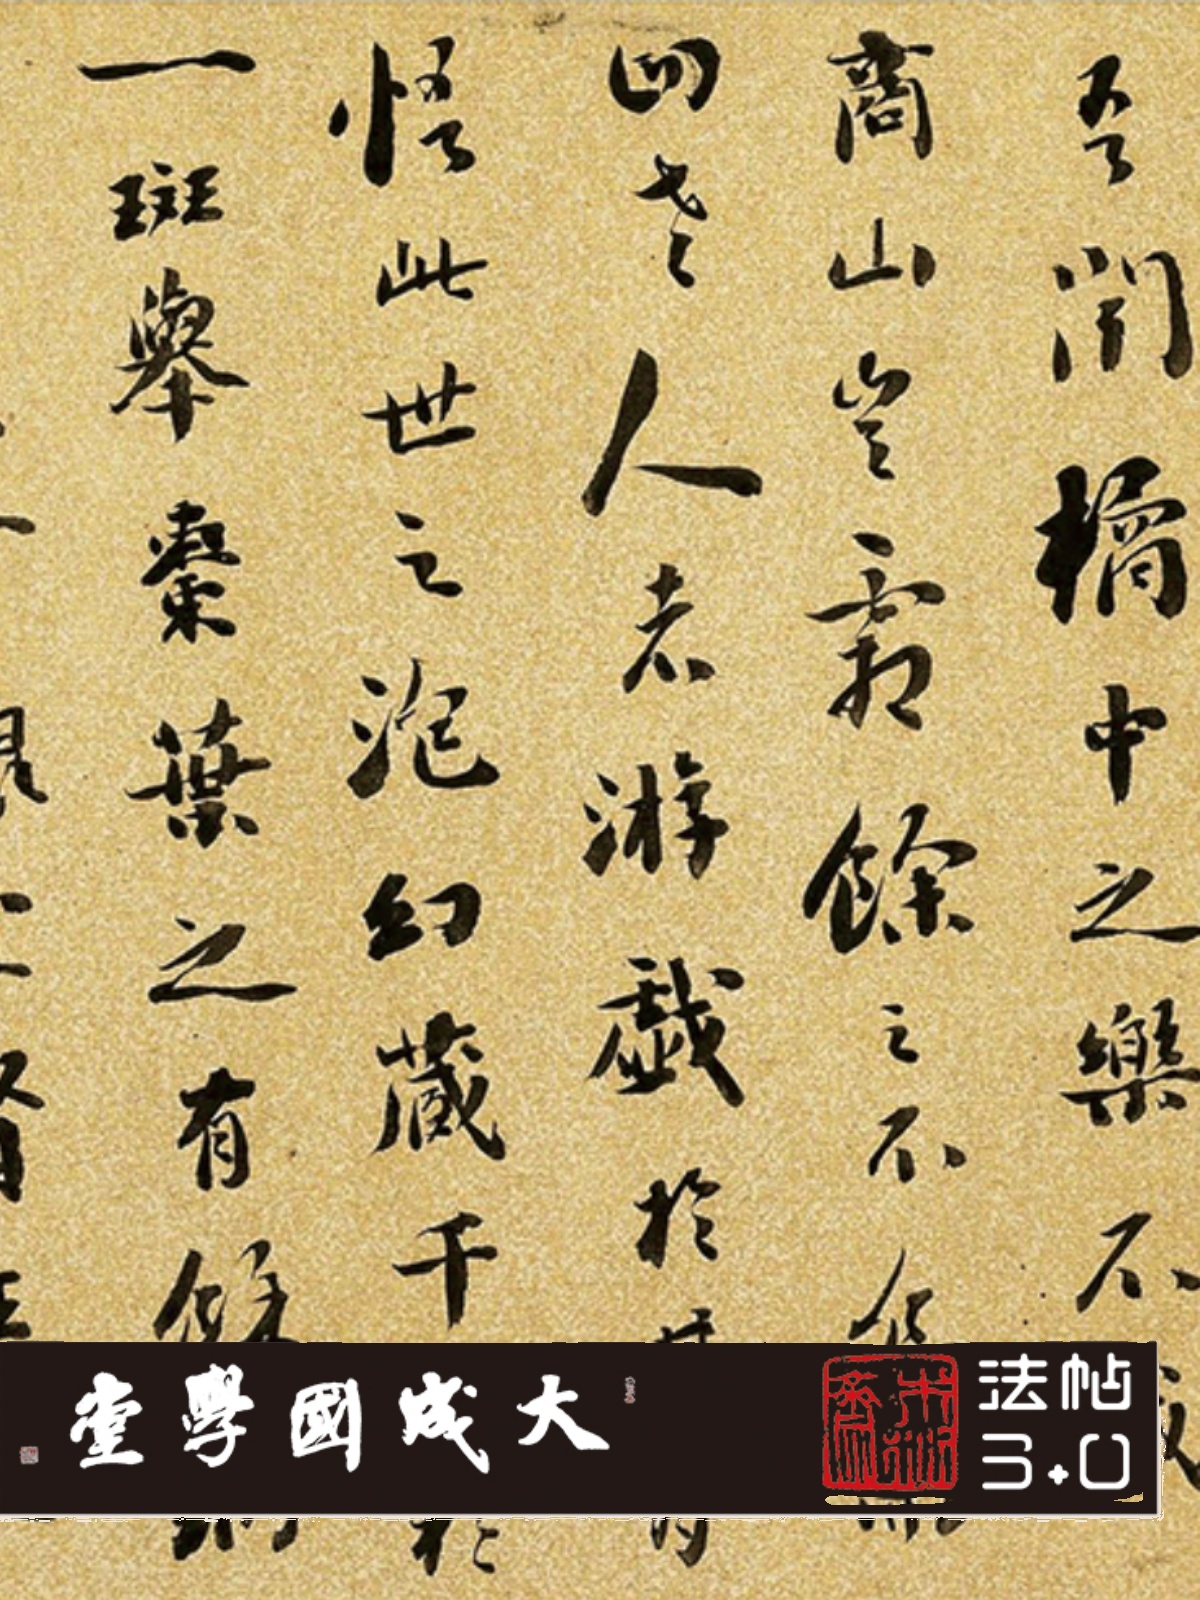 吾聞橘中之樂不
商山豈霜餘之不食
四老人者游戲於
悟此世之泡幻藏千於
一斑舉棗葉之有餘
大成國學堂
法帖
3.0